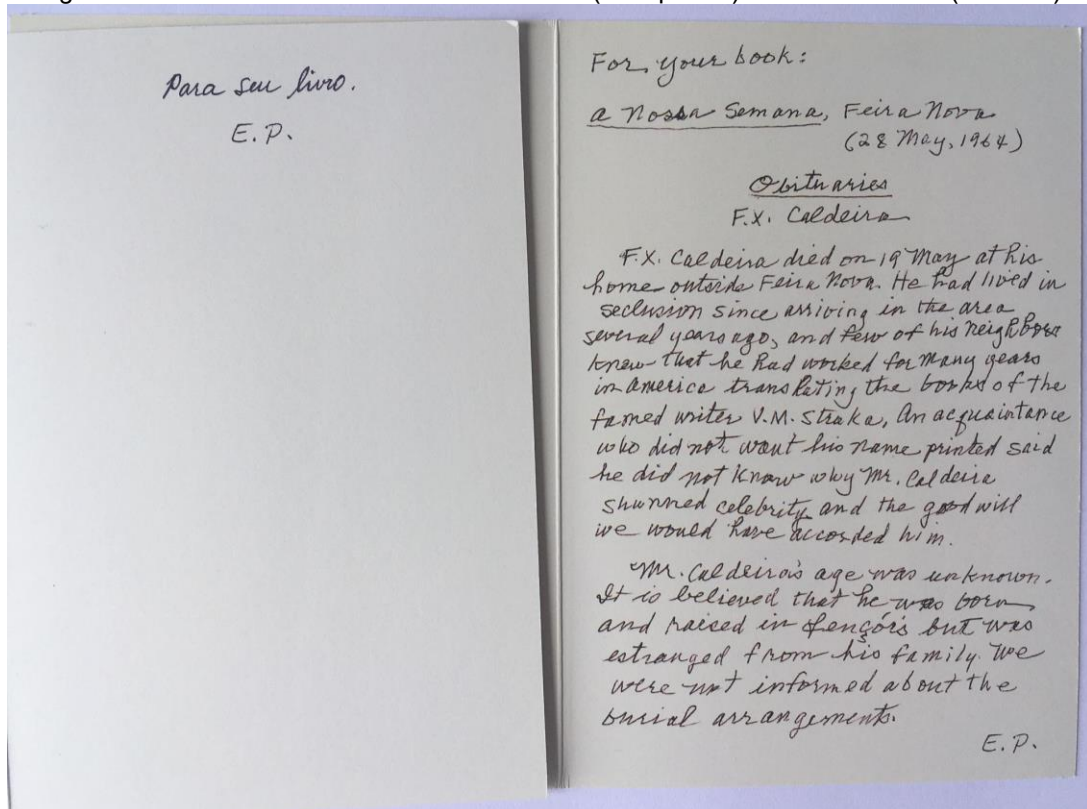 Para seu livro.
E.P.
For your book:
A Nossa Semana, Feira Nova
(28 May, 1964)
Obituaries
F.X. Caldeira
F.X. Caldeira died on 19 May at his
home outside Feira Nova. He had lived in
seclusion since arriving in the area
several years ago, and few of his neighbors
knew that he had worked for many years
in America translating the books of the
famed writer V.M. Straka. An acquaintance
who did not want his name printed said
he did not know why Mr. Caldeira
shunned celebrity and the good will
we would have accorded him.
Mr. Caldeira's age was unknown.
It is believed that he was born
and raised in Lençóis but was
estranged from his family. We
were not informed about the
burial arrangements.
E.P.